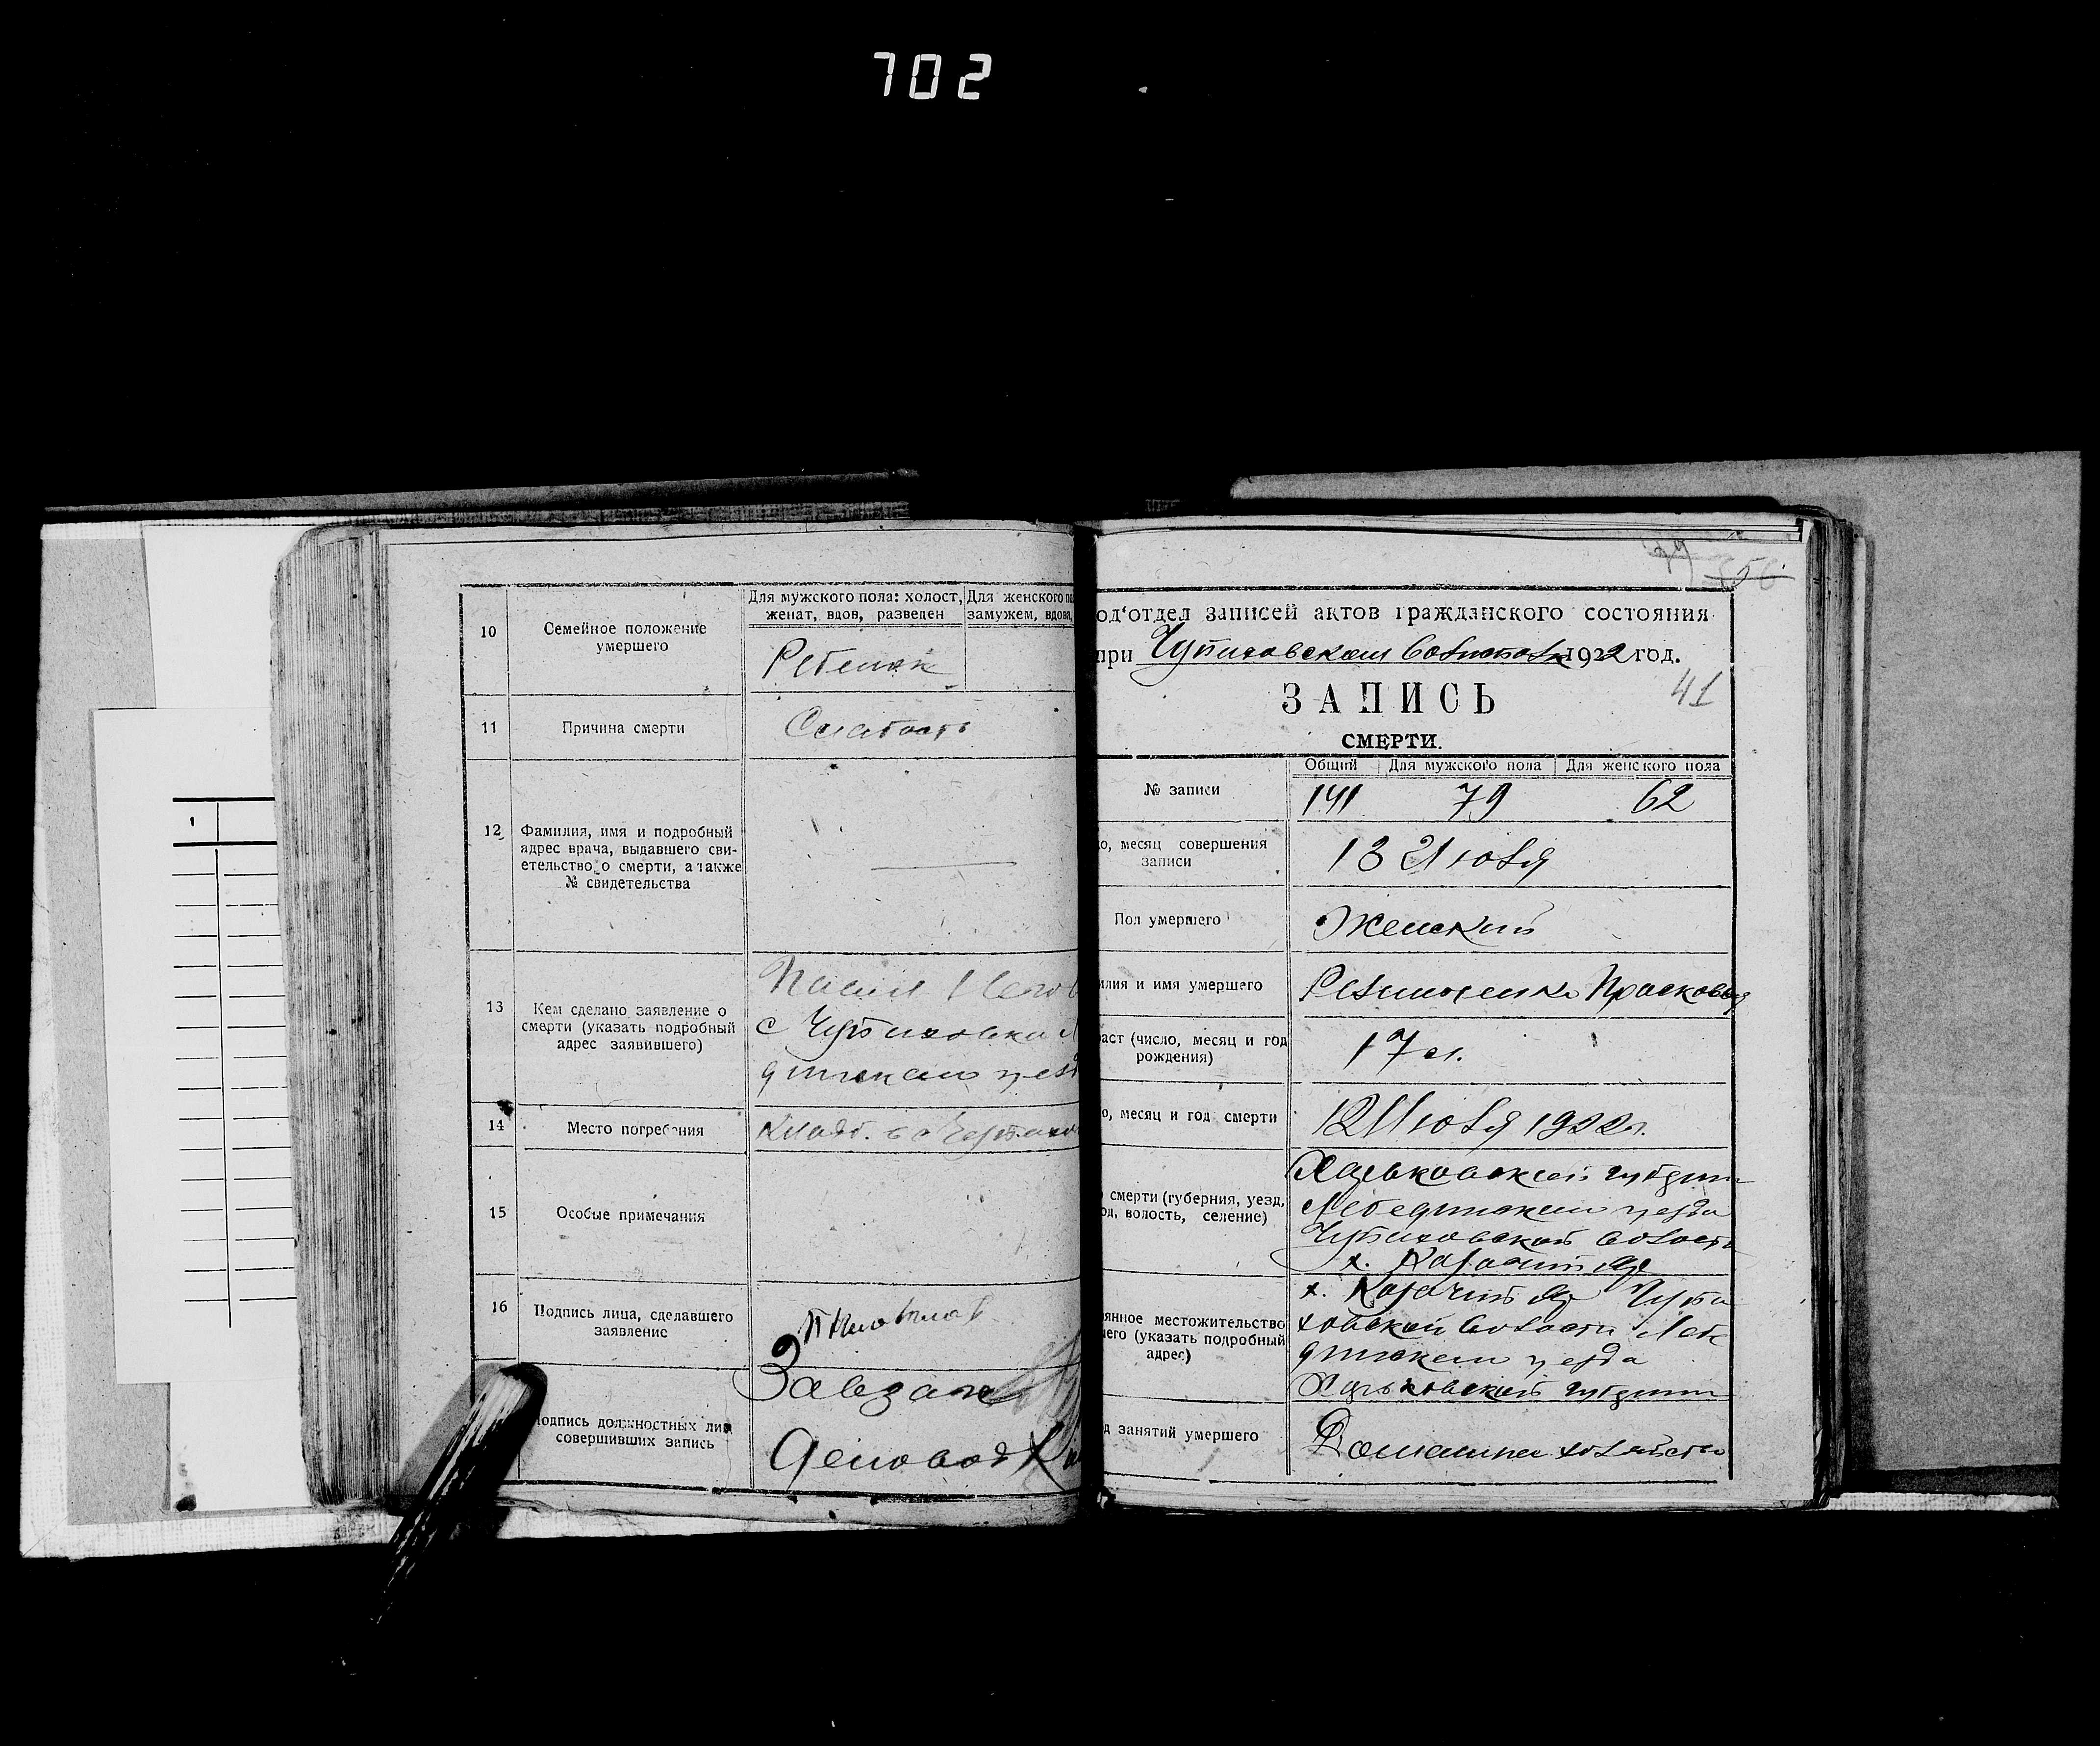 702
10
Семейное положение
умершего
Для мужского пола: холост,
женат, вдов, разведен
Для женского по
замужем, вдова,
Ребенок
11
Причина смерти
Слабость
12
Фамилия, имя и подробный
адрес врача, выдавшего сви-
етельство о смерти, а также
№ свидетельства
13
Кем сделано заявление о
смерти (указать подробный
адрес заявившего)
с Чупаховки
уезд
14
Место погребения
Кладб.
15
Особые примечания
16
Подпись лица, сделавшего
заявление
Подпись должностных лиц
совершивших запись
Завзаг
Деловод
79
од'отдел записей актов гражданского состояния
при Чупаховском Волисполк 1922 год.
41
ЗАПИСЬ
СМЕРТИ.
№ записи
Общий
Для мужского пола
Для женского пола
141
79
62
о, месяц совершения
записи
13 Июля
Пол умершего
Женский
илия и имя умершего
Прасковья
аст (число, месяц и год
рождения)
17 л.
о, месяц и год смерти
12 Июля 1922 г.
смерти (губерния, уезд,
од, волость, селение)
Харьковской губернии
Лебединском уезда
Чупаховской волости
х. Казачий
янное местожительство
его (указать подробный
адрес)
х. Казачий Чупа
ховской волости Лебе
динском уезда
Харьковской губернии
д занятий умершего
Домашнее хозяйство